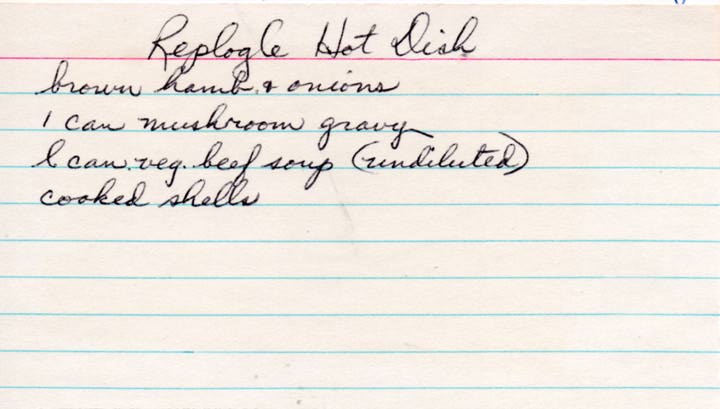 Replogle Hot Dish
brown hamb. & onions
1 can mushroom gravy
1 can veg. beef soup (undiluted)
cooked shells